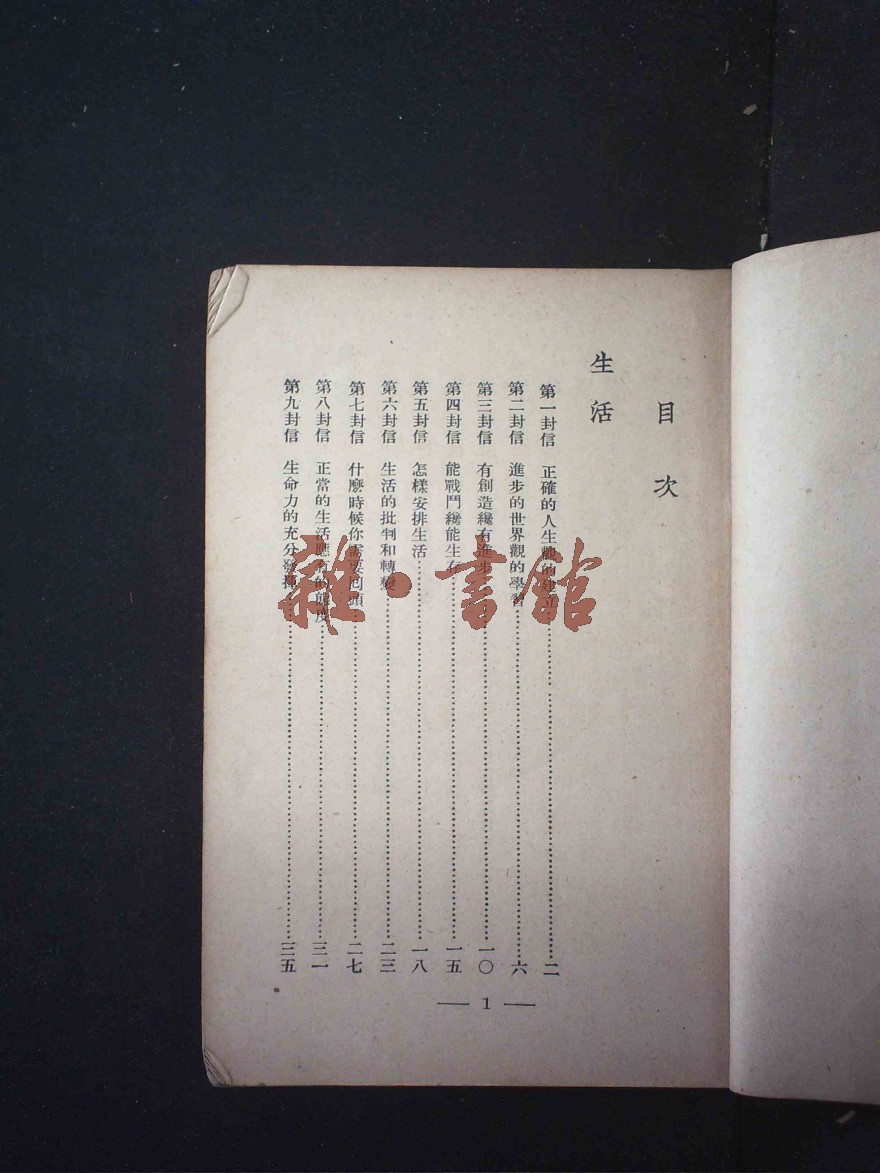 目次
生活
第一封信 正確的人生觀的建立 二
第二封信 進步的世界觀的學習 六
第三封信 有創造纔有進步 一〇
第四封信 能戰鬥纔能生存 一五
第五封信 怎樣安排生活 一八
第六封信 生活的批判和轉變 二三
第七封信 什麼時候你需要回頭 二七
第八封信 正當的生活應有的態度 三一
第九封信 生命力的充分發揮 三五
— 1 —
雜·書館